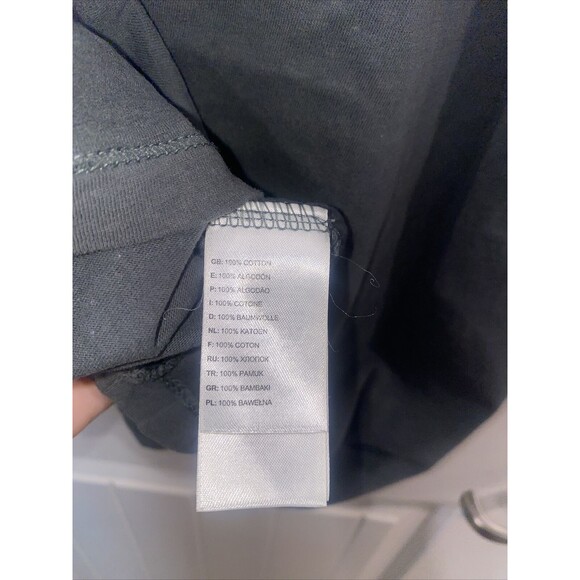 GB: 100% COTTON
E: 100% ALGODÓN
P: 100% ALGODÃO
I: 100% COTONE
D: 100% BAUMWOLLE
NL: 100% KATOEN
F: 100% COTON
RU: 100% ХЛОПОК
TR: 100% PAMUK
GR: 100% BAMBAKI
PL: 100% BAWEŁNA